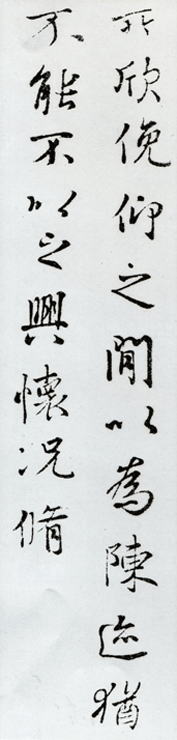 所欣俛仰之閒以為陳迹猶
不能不以之興懷況脩